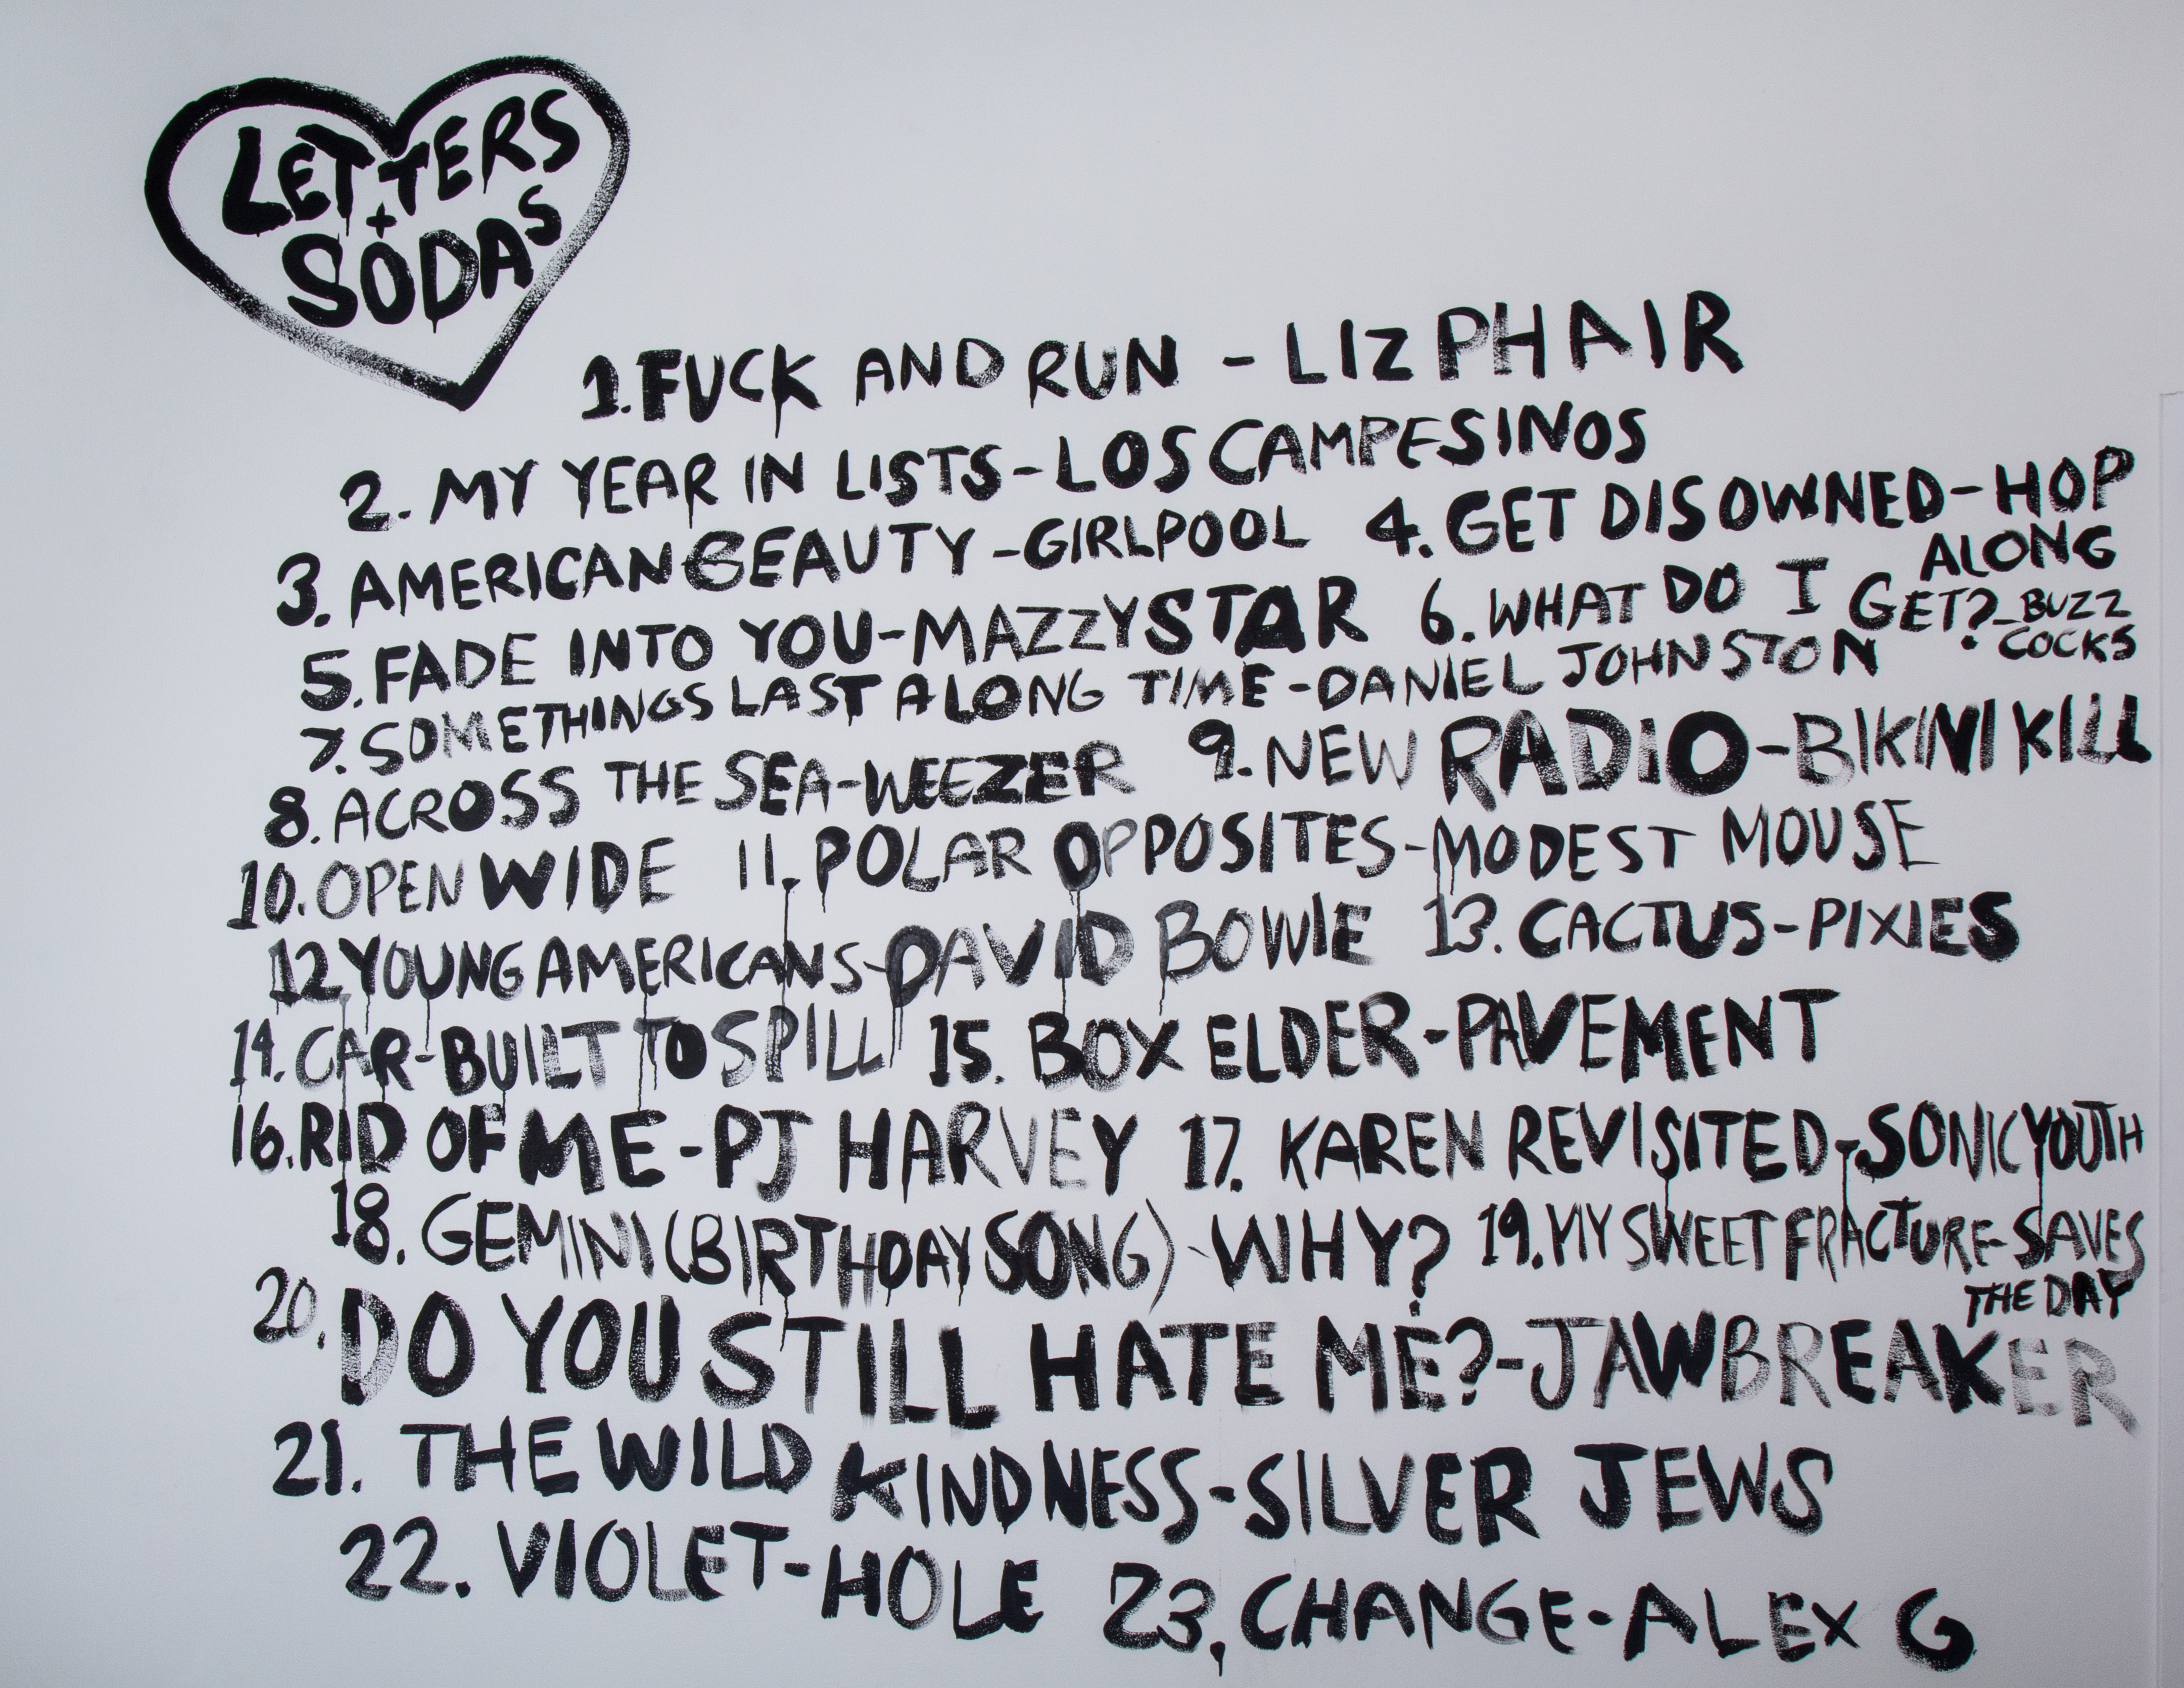 LETTERS
+
SODAS
1. FUCK AND RUN - LIZ PHAIR
2. MY YEAR IN LISTS - LOS CAMPESINOS
3. AMERICAN BEAUTY - GIRLPOOL 4. GET DISOWNED - HOP
ALONG
5. FADE INTO YOU - MAZZY STAR 6. WHAT DO I GET? - BUZZ
COCKS
7. SOMETHINGS LAST A LONG TIME - DANIEL JOHNSTON
8. ACROSS THE SEA - WEEZER 9. NEW RADIO - BIKINI KILL
10. OPEN WIDE 11. POLAR OPPOSITES - MODEST MOUSE
12 YOUNG AMERICANS - DAVID BOWIE 13. CACTUS - PIXIES
14. CAR - BUILT TO SPILL 15. BOX ELDER - PAVEMENT
16. RID OF ME - PJ HARVEY 17. KAREN REVISITED - SONIC YOUTH
18. GEMINI (BIRTHDAY SONG) - WHY? 19. MY SWEET FRACTURE - SAVES
THE DAY
20. DO YOU STILL HATE ME? - JAWBREAKER
21. THE WILD KINDNESS - SILVER JEWS
22. VIOLET - HOLE 23. CHANGE - ALEX G